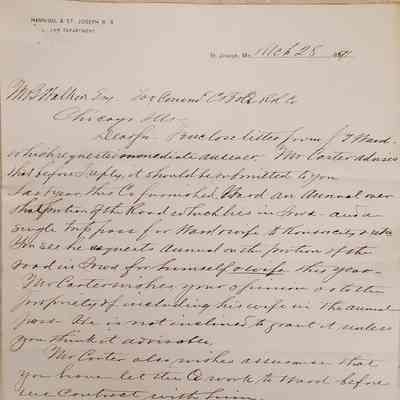 HANNIBAL & ST. JOSEPH R. R.
LAW DEPARTMENT
St. Joseph, Mo. Mch 28
Walker Esq.
Chicago Ills
Dear Sir I enclose letter from J T Ward
which requests immediate answer Mr Carter advises
that before I reply, it should be submitted to you
Last year this Co furnished Ward an Annual over
that portion of the Road which lies in Iowa and a
single trip pass for Ward & wife to & return
You see he requests Annual on the portion of the
road in Iowa for himself & wife this year
Mr Carter wishes your opinion as to the
propriety of including his wife in the annual
pass He is not inclined to grant it unless
you think it advisable
Mr Carter also wishes assurance that
you have let the work to Ward before
we contract with him